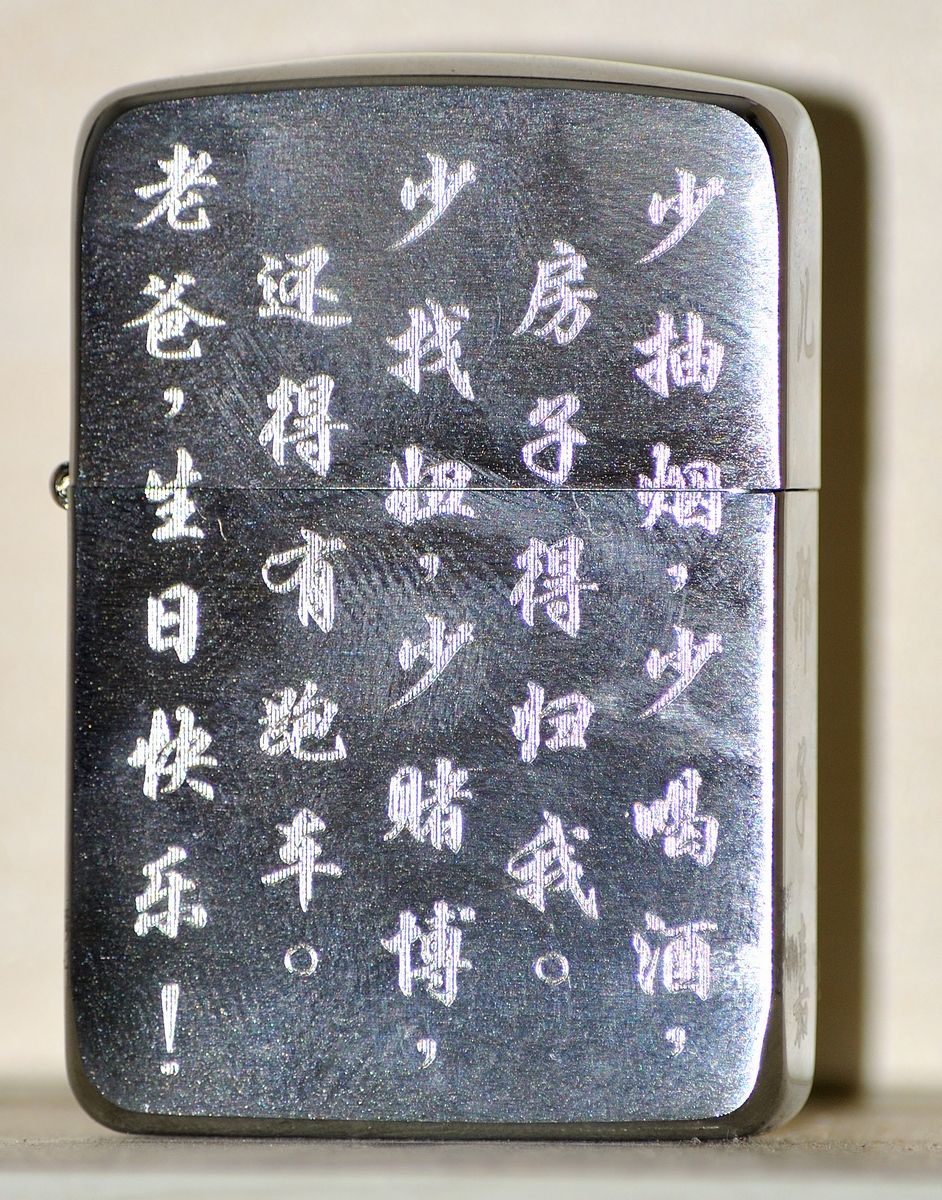 少抽烟，少喝酒，
房子得归我。
少找妞，少赌博，
还得有跑车。
老爸，生日快乐！